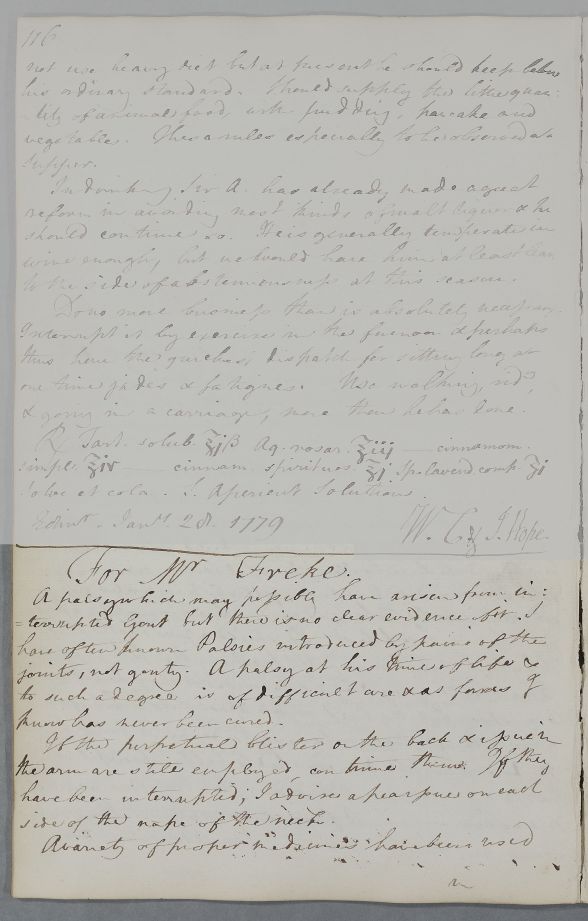 116
not use heavy diet but at present he should keep below
his ordinary standard. Should supply the little quan:
-tity of animal food, with pudding, pancake and
vegetable. These rules especially to be observed at
Supper.
In drinking Sir A. has already made a great
reform in avoiding most kinds of malt liquor & he
should continue so. He is generally temperate in
wine enough, but we would have him at least lean
to the side of abstemiousness at this season.
Do no more business than is absolutely necessary.
Interrupt it by exercise in the forenoon & perhaps
thus have the quicker dispatch for sitting long at
one time jades & fatigues. Use walking, rid:
& going in a carriage, more than he has done.
℞ Tart. solub. ℥jß Aq. rosar. ℥iij — cinnamom.
simpl. ℥iv — cinnam. spirituos. ℥j Sp. lavend. comp. ʒj
Solve et cola. S. Aperient Solution.
Edinr. Janry. 28. 1779
W. C. & J. Hope.
For Mr Freke.
A palsy which may possibly have arisen from in:
=terrupted Gout but there is no clear evidence of it. I
have often known Palsies introduced by pains of the
joints, not gouty. A palsy at his time of life &
to such a degree is of difficult cure & as far as I
know has never been cured.
If the perpetual blister on the back & issue in
the arm are still employed, continue them. If they
have been interrupted, I advise a pea issue on each
side of the nape of the neck.
A variety of proper medicines have been used